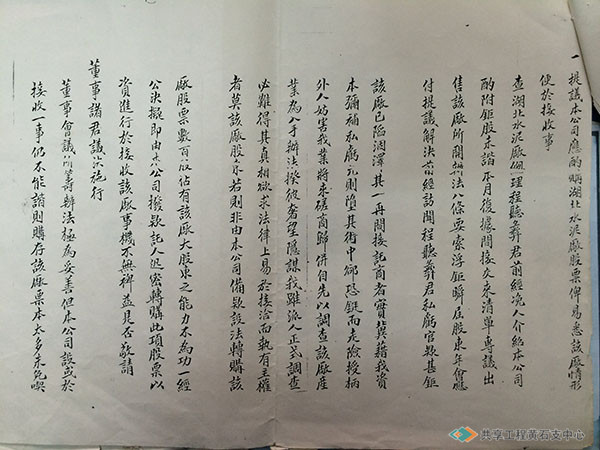 一提議本公司應酌購湖北水泥廠股票俾易悉該廠情形
便於接收事
查湖北水泥廠經理程聽彝君前經浼人介紹本公司
酌附鉅股未諧本月復據間接交來清單一專議出
售該廠所開辦法八條要索浮鉅瞬屆股東年會應
付提議解決當經訪聞程聽彝君私虧官款甚鉅
該廠已陷涸澤其一再間接託商者實冀藉我資
本彌補私虧允則墮其術中卻恐鋌而走險授柄
外人妨害我業將來磋商歸併自先以調查該廠產
業為入手辦法揆彼奢望隱謀我雖派人正式調查
必難得其真相欲求法律上易於接洽而執有主權
者莫該廠股東若則非由本公司備款設法轉購該
廠股票數百股佔有該廠大股東之能力不為功一經
公決擬即由本公司撥款託人迅密轉購此項股票以
資進行於接收該廠事機不無裨益是否敬請
董事諸君議決施行
董事會議所籌辦法極為妥善但本公司設或於
接收一事仍不能諧則購存該廠票本太多未免喫
共享工程黃石支中心